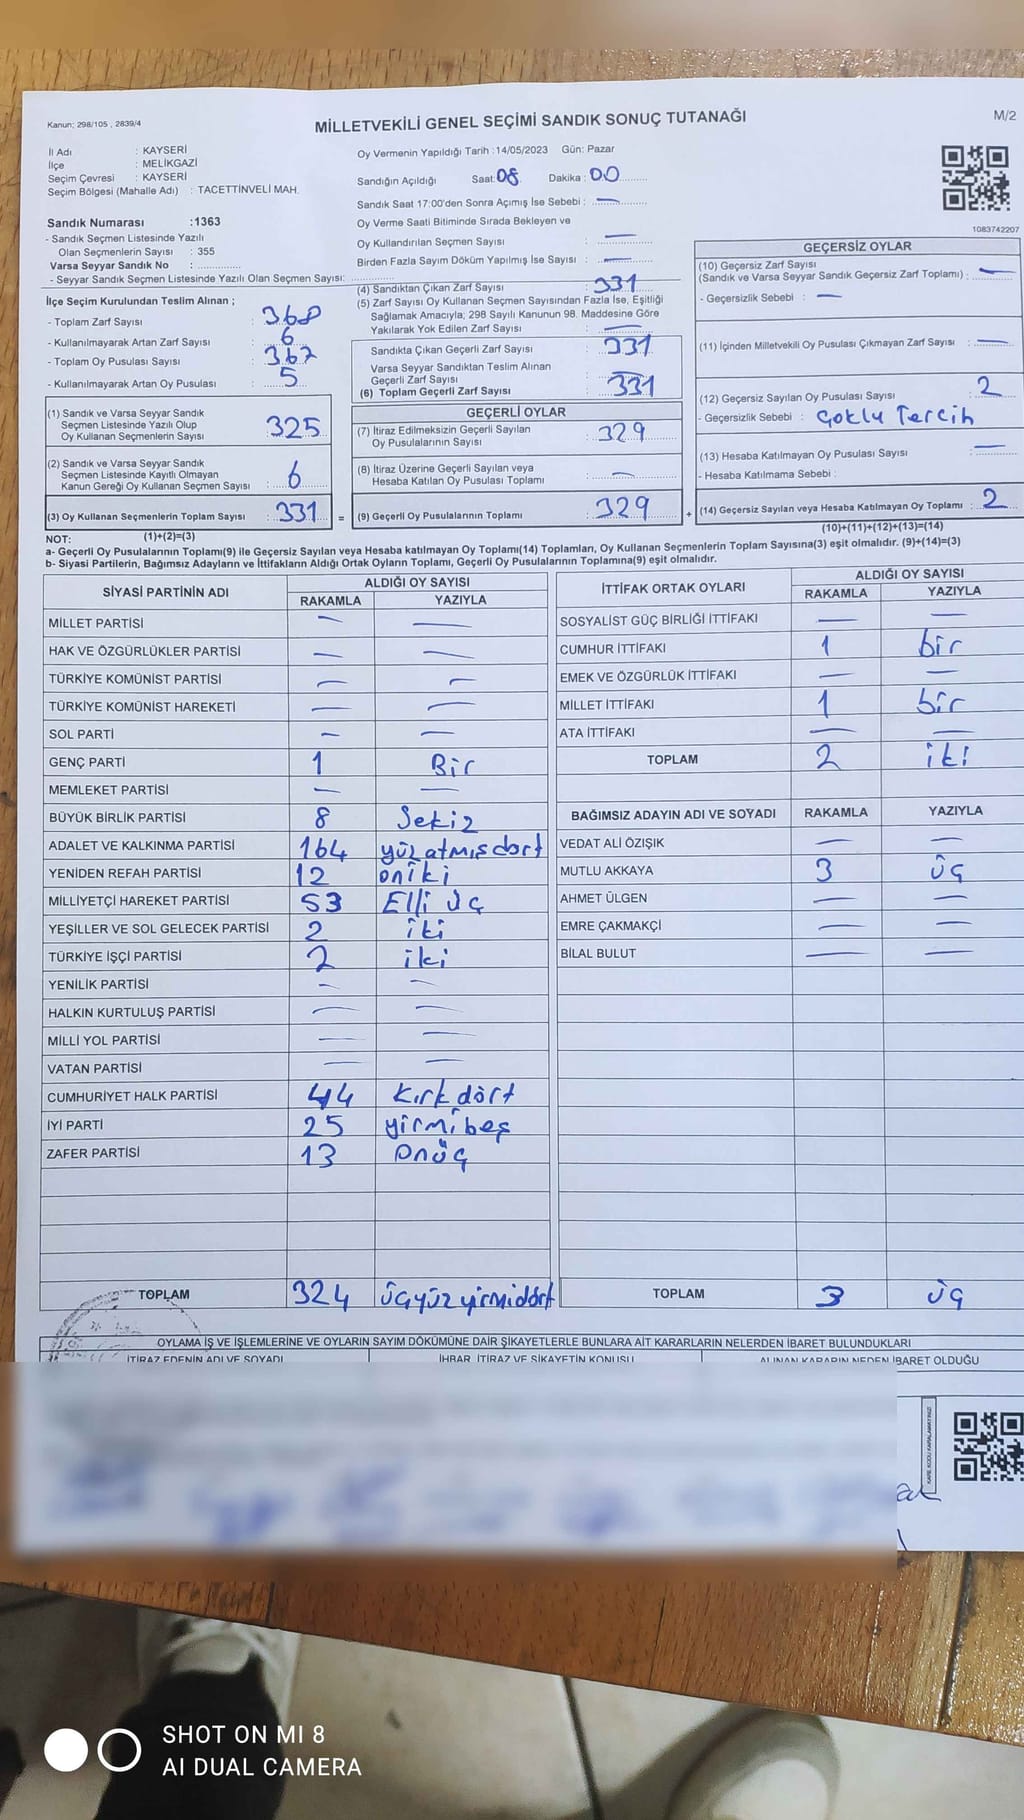 Kanun; 298/105 , 2839/4
MİLLETVEKİLİ GENEL SEÇİMİ SANDIK SONUÇ TUTANAĞI
M/2
İl Adı : KAYSERİ
İlçe : MELİKGAZİ
Seçim Çevresi : KAYSERİ
Seçim Bölgesi (Mahalle Adı) : TACETTİNVELİ MAH.
Sandık Numarası :1363
- Sandık Seçmen Listesinde Yazılı
Olan Seçmenlerin Sayısı : 355
Varsa Seyyar Sandık No :
- Seyyar Sandık Seçmen Listesinde Yazılı Olan Seçmen Sayısı:
Oy Vermenin Yapıldığı Tarih :14/05/2023 Gün: Pazar
Sandığın Açıldığı Saat: 08 Dakika : 00
Sandık Saat 17:00'den Sonra Açımış İse Sebebi : —
Oy Verme Saati Bitiminde Sırada Bekleyen ve
Oy Kullandırılan Seçmen Sayısı : —
Birden Fazla Sayım Döküm Yapılmış İse Sayısı : —
1083742207
İlçe Seçim Kurulundan Teslim Alınan ;
- Toplam Zarf Sayısı : 368
- Kullanılmayarak Artan Zarf Sayısı : 6
- Toplam Oy Pusulası Sayısı : 367
- Kullanılmayarak Artan Oy Pusulası : 5
(1) Sandık ve Varsa Seyyar Sandık
Seçmen Listesinde Yazılı Olup
Oy Kullanan Seçmenlerin Sayısı : 325
(2) Sandık ve Varsa Seyyar Sandık
Seçmen Listesinde Kayıtlı Olmayan
Kanun Gereği Oy Kullanan Seçmen Sayısı : 6
(3) Oy Kullanan Seçmenlerin Toplam Sayısı : 331 =
(1)+(2)=(3)
(4) Sandıktan Çıkan Zarf Sayısı : 331
(5) Zarf Sayısı Oy Kullanan Seçmen Sayısından Fazla İse, Eşitliği
Sağlamak Amacıyla; 298 Sayılı Kanunun 98. Maddesine Göre
Yakılarak Yok Edilen Zarf Sayısı : —
Sandıkta Çıkan Geçerli Zarf Sayısı : 331
Varsa Seyyar Sandıktan Teslim Alınan
Geçerli Zarf Sayısı : —
(6) Toplam Geçerli Zarf Sayısı : 331
GEÇERLİ OYLAR
(7) İtiraz Edilmeksizin Geçerli Sayılan
Oy Pusulalarının Sayısı : 329
(8) İtiraz Üzerine Geçerli Sayılan veya
Hesaba Katılan Oy Pusulası Toplamı : —
(9) Geçerli Oy Pusulalarının Toplamı : 329 +
GEÇERSİZ OYLAR
(10) Geçersiz Zarf Sayısı
(Sandık ve Varsa Seyyar Sandık Geçersiz Zarf Toplamı) : —
- Geçersizlik Sebebi : —
(11) İçinden Milletvekili Oy Pusulası Çıkmayan Zarf Sayısı : —
(12) Geçersiz Sayılan Oy Pusulası Sayısı : 2
- Geçersizlik Sebebi : Çoklu Tercih
(13) Hesaba Katılmayan Oy Pusulası Sayısı : —
- Hesaba Katılmama Sebebi :
(14) Geçersiz Sayılan veya Hesaba Katılmayan Oy Toplamı : 2
(10)+(11)+(12)+(13)=(14)
NOT:
a- Geçerli Oy Pusulalarının Toplamı(9) ile Geçersiz Sayılan veya Hesaba katılmayan Oy Toplamı(14) Toplamları, Oy Kullanan Seçmenlerin Toplam Sayısına(3) eşit olmalıdır. (9)+(14)=(3)
b- Siyasi Partilerin, Bağımsız Adayların ve İttifakların Aldığı Ortak Oyların Toplamı, Geçerli Oy Pusulalarının Toplamına(9) eşit olmalıdır.
SİYASİ PARTİNİN ADI ALDIĞI OY SAYISI
RAKAMLA YAZIYLA
MİLLET PARTİSİ — —
HAK VE ÖZGÜRLÜKLER PARTİSİ — —
TÜRKİYE KOMÜNİST PARTİSİ — —
TÜRKİYE KOMÜNİST HAREKETİ — —
SOL PARTİ — —
GENÇ PARTİ 1 Bir
MEMLEKET PARTİSİ — —
BÜYÜK BİRLİK PARTİSİ 8 Sekiz
ADALET VE KALKINMA PARTİSİ 164 yüzatmışdört
YENİDEN REFAH PARTİSİ 12 oniki
MİLLİYETÇİ HAREKET PARTİSİ 53 Elli üç
YEŞİLLER VE SOL GELECEK PARTİSİ 2 iki
TÜRKİYE İŞÇİ PARTİSİ 2 iki
YENİLİK PARTİSİ — —
HALKIN KURTULUŞ PARTİSİ — —
MİLLİ YOL PARTİSİ — —
VATAN PARTİSİ — —
CUMHURİYET HALK PARTİSİ 44 Kırk dört
İYİ PARTİ 25 yirmibeş
ZAFER PARTİSİ 13 Onüç
TOPLAM 324 üçyüzyirmidört
İTTİFAK ORTAK OYLARI ALDIĞI OY SAYISI
RAKAMLA YAZIYLA
SOSYALİST GÜÇ BİRLİĞİ İTTİFAKI — —
CUMHUR İTTİFAKI 1 bir
EMEK VE ÖZGÜRLÜK İTTİFAKI — —
MİLLET İTTİFAKI 1 bir
ATA İTTİFAKI — —
TOPLAM 2 iki
BAĞIMSIZ ADAYIN ADI VE SOYADI RAKAMLA YAZIYLA
VEDAT ALİ ÖZIŞIK — —
MUTLU AKKAYA 3 üç
AHMET ÜLGEN — —
EMRE ÇAKMAKÇİ — —
BİLAL BULUT — —
TOPLAM 3 üç
OYLAMA İŞ VE İŞLEMLERİNE VE OYLARIN SAYIM DÖKÜMÜNE DAİR ŞİKAYETLERLE BUNLARA AİT KARARLARIN NELERDEN İBARET BULUNDUKLARI
İTİRAZ EDENİN ADI VE SOYADI İHBAR, İTİRAZ VE ŞİKAYETİN KONUSU ALINAN KARARIN NEDEN İBARET OLDUĞU
KARE KODU KARALAMAYINIZ
SHOT ON MI 8
AI DUAL CAMERA